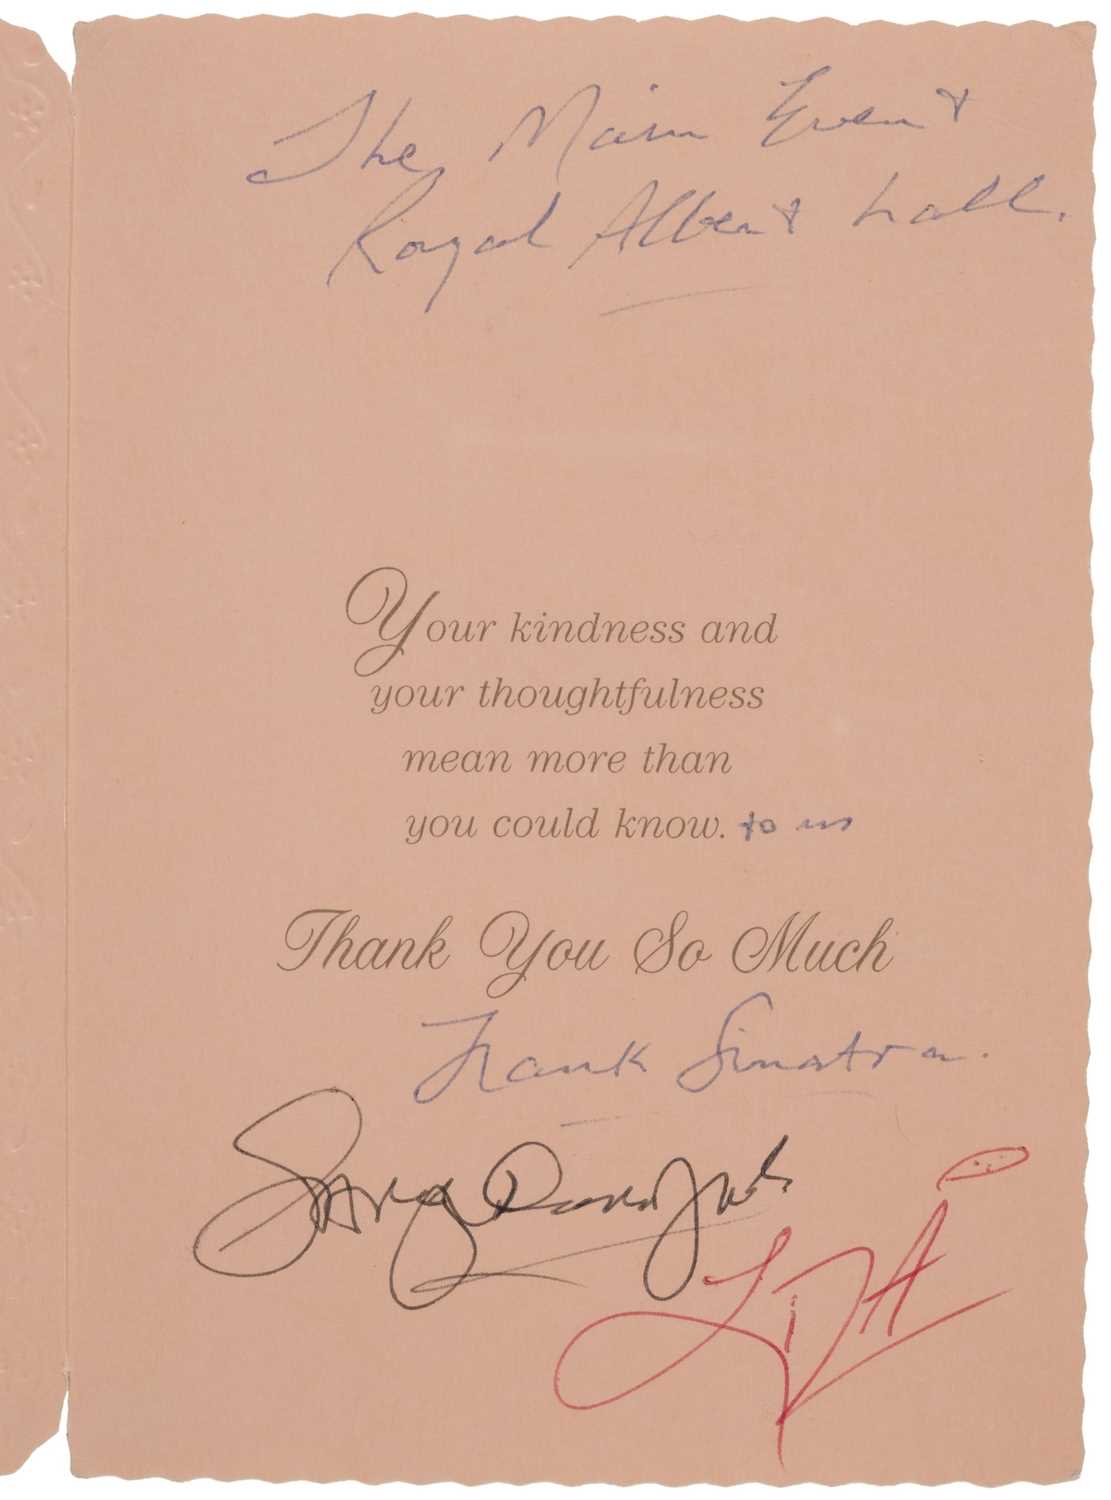 The Main Event
Royal Albert hall.
Your kindness and
your thoughtfulness
mean more than
you could know. to us
Thank You So Much
Frank Sinatra.
Sammy Davis Jr
LIZA